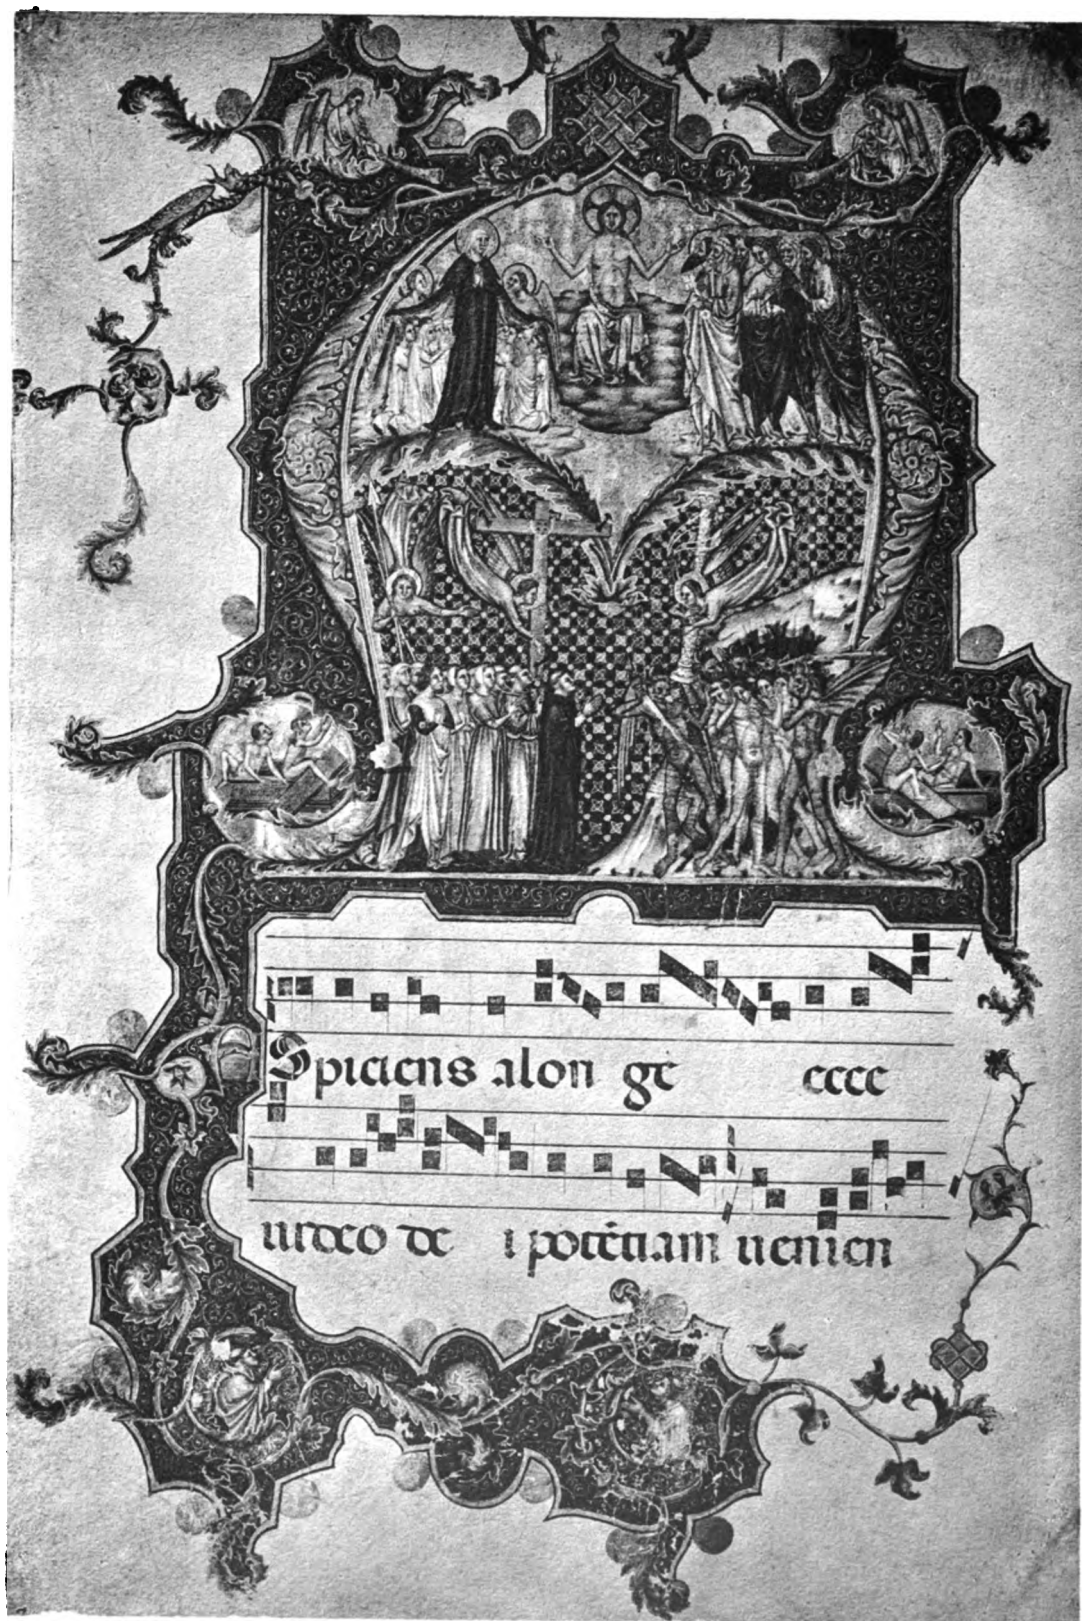 Spiciens alon ge eeee
uideo de i potētiam uenien